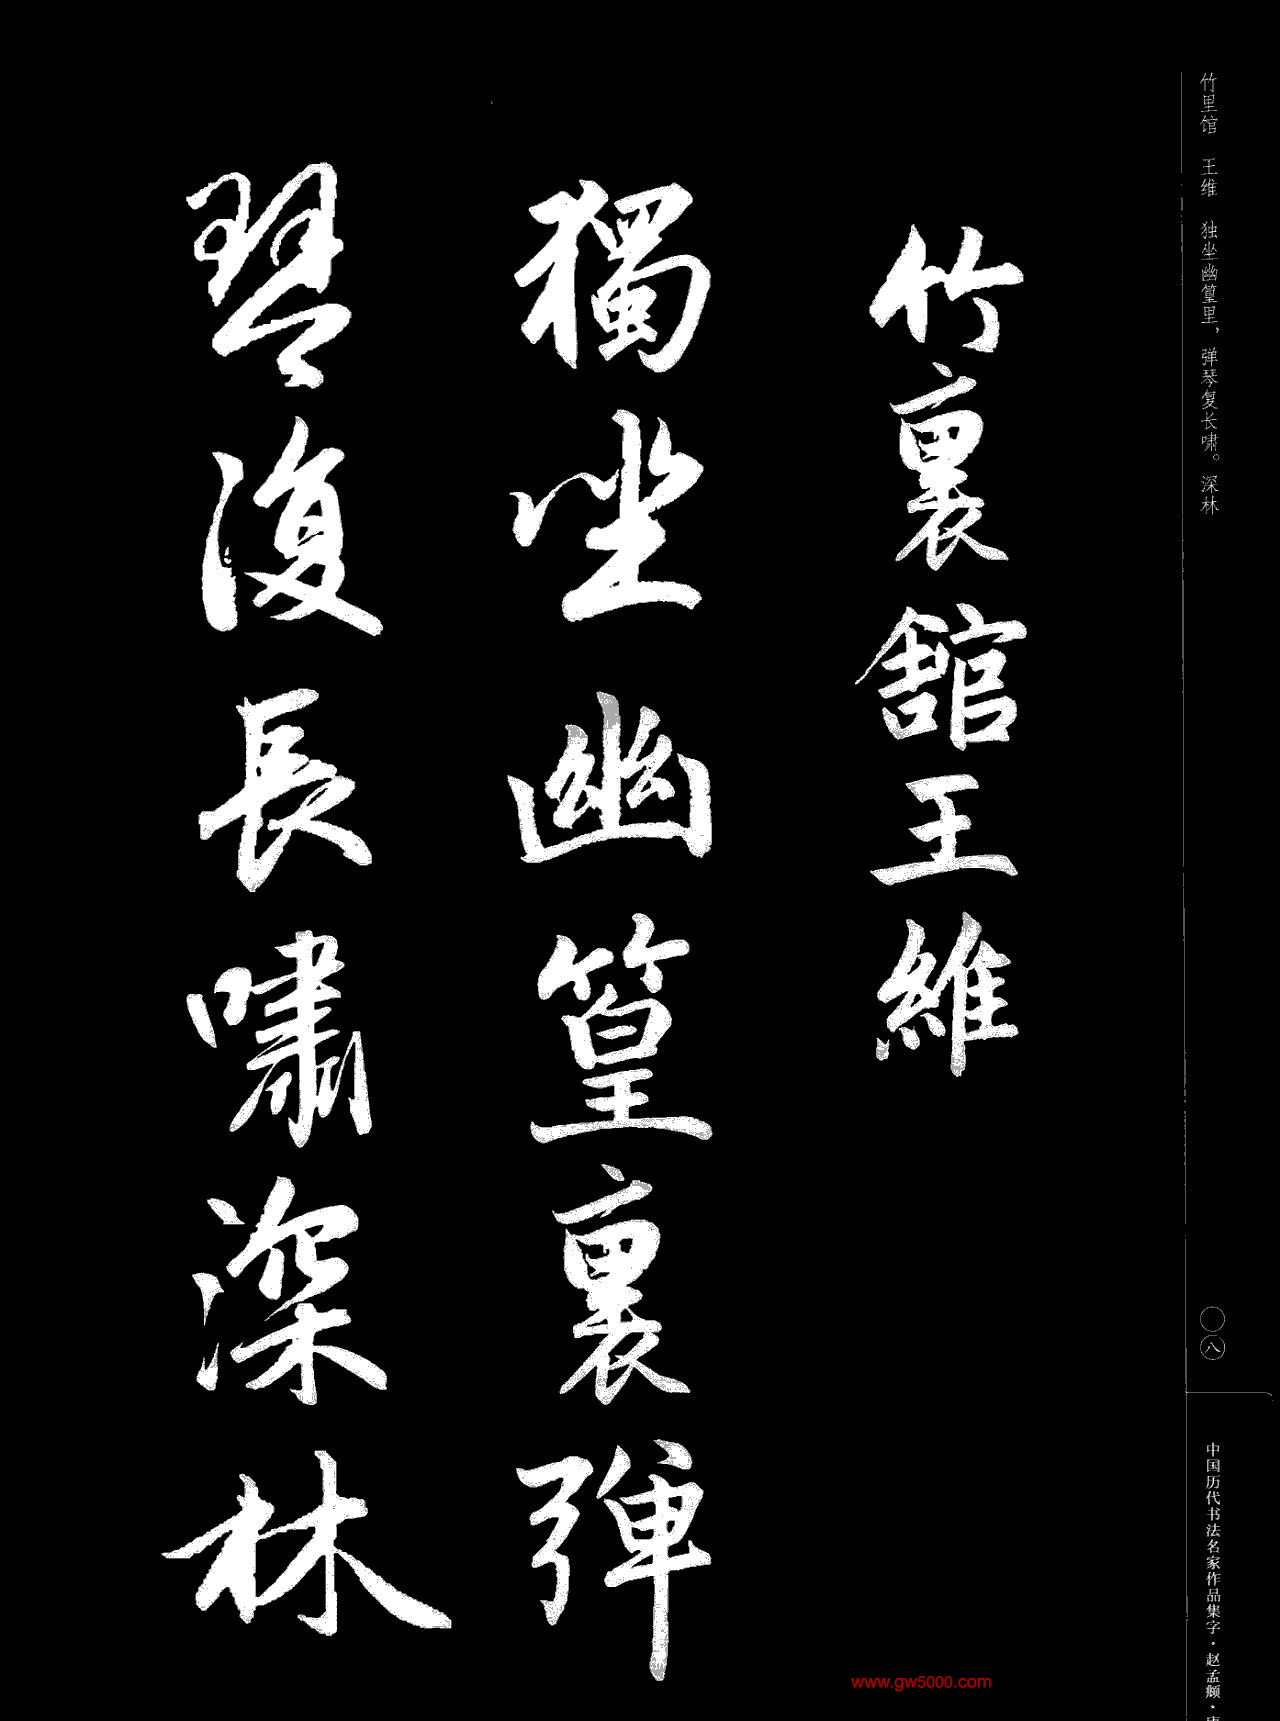 竹里馆　王维　独坐幽篁里，弹琴复长啸。深林
竹裏館王維
獨坐幽篁裏彈
琴復長嘯深林
〇八
中国历代书法名家作品集字·赵孟頫·
www.gw5000.com